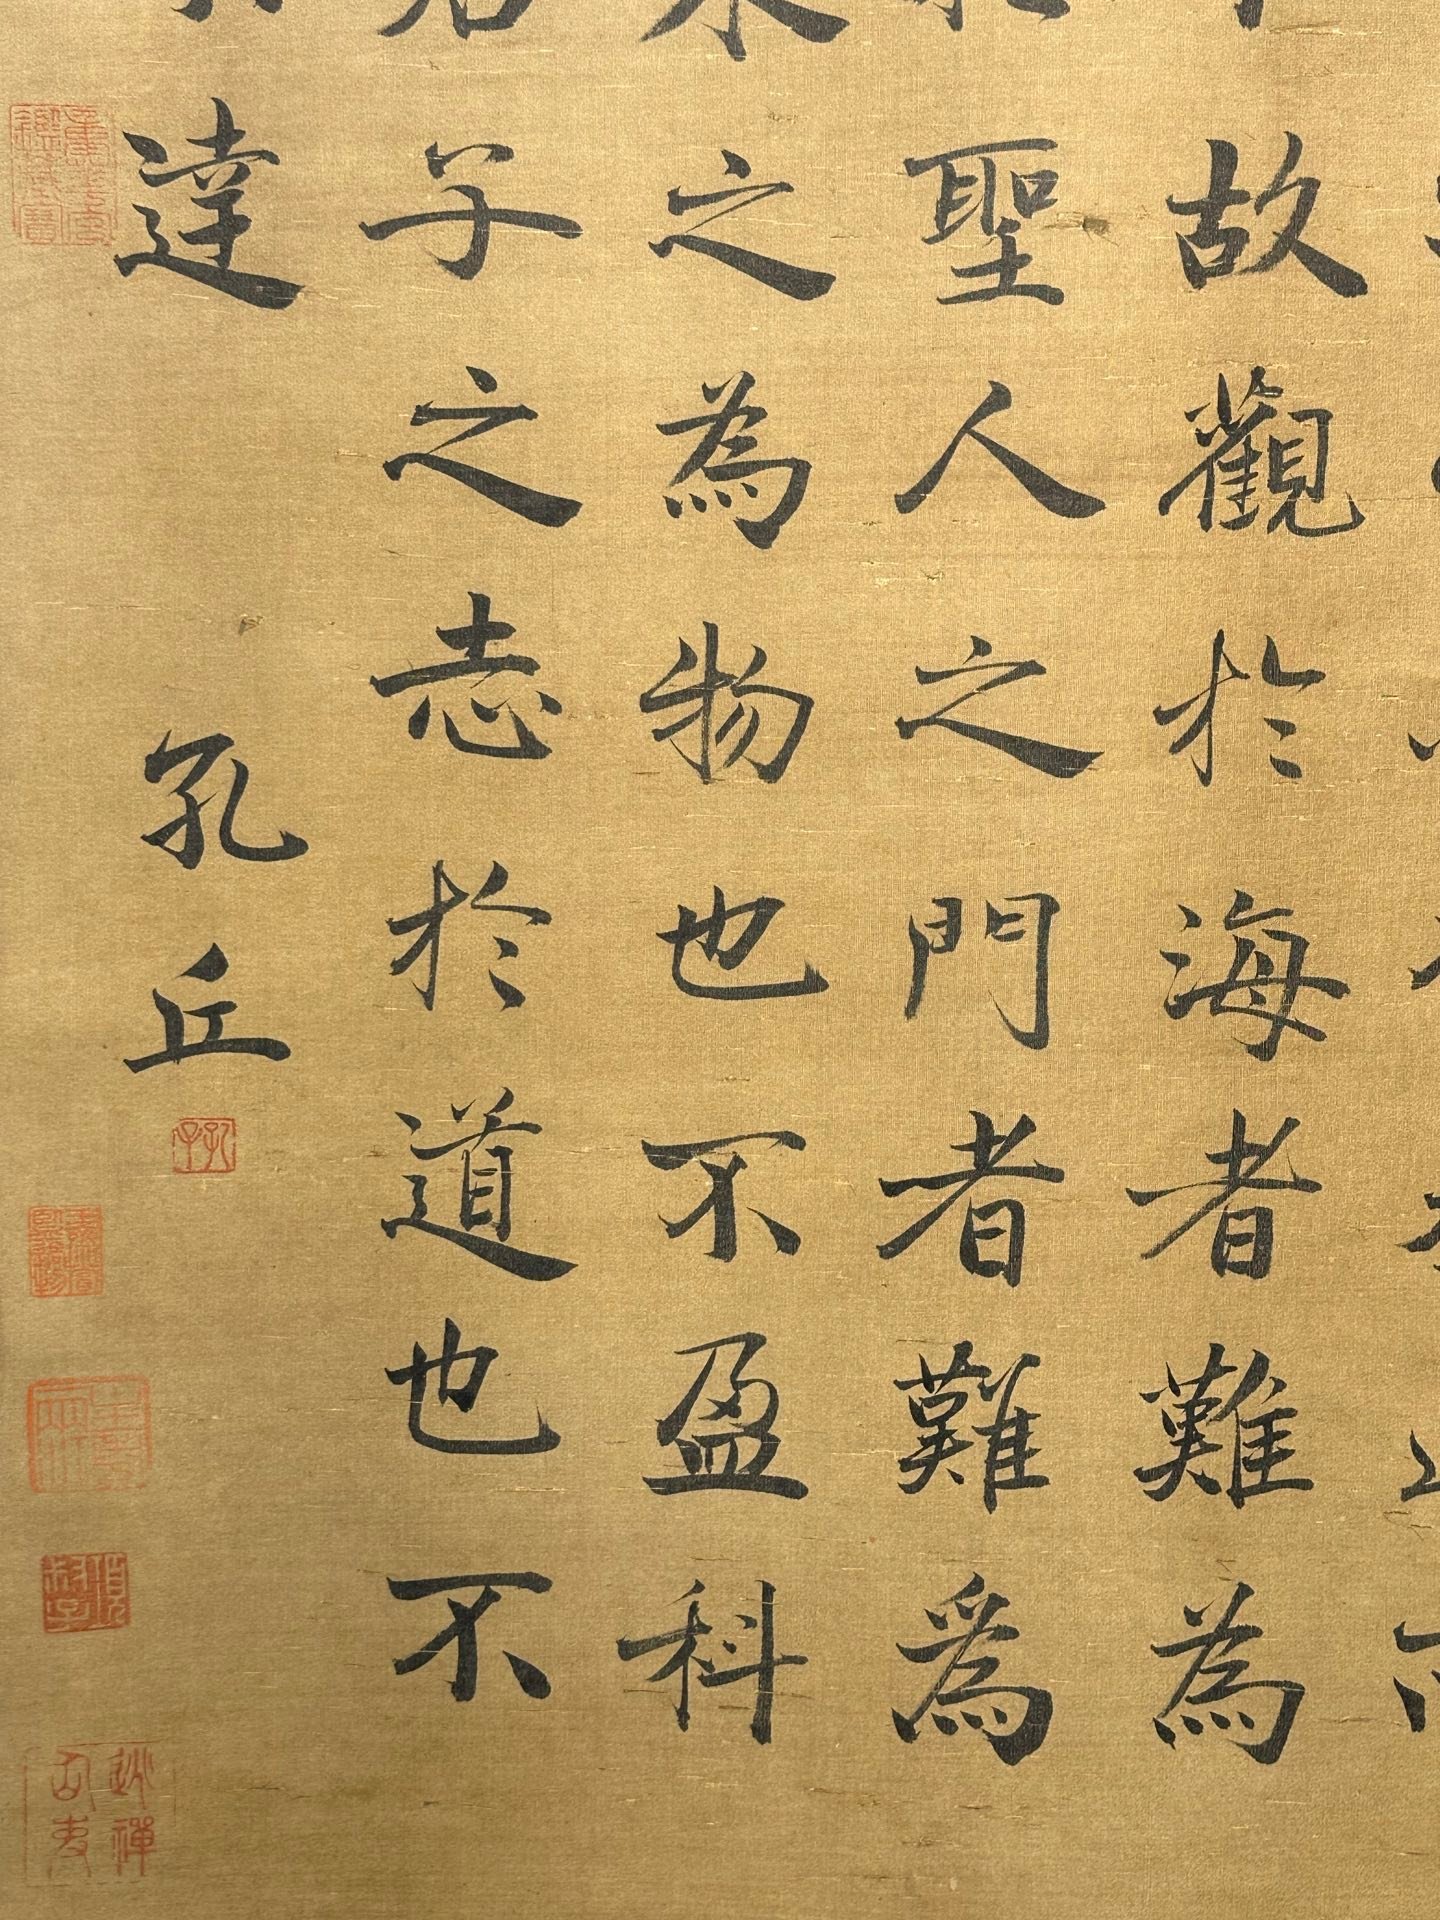 故觀於海者難為
聖人之門者難爲
之為物也不盈科
子之志於道也不
達
孔丘
孔子